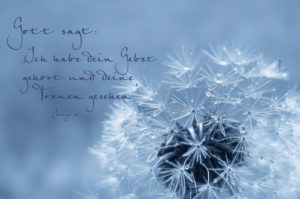 Gott sagt:
Ich habe dein Gebet
gehört und deine
Tränen gesehen